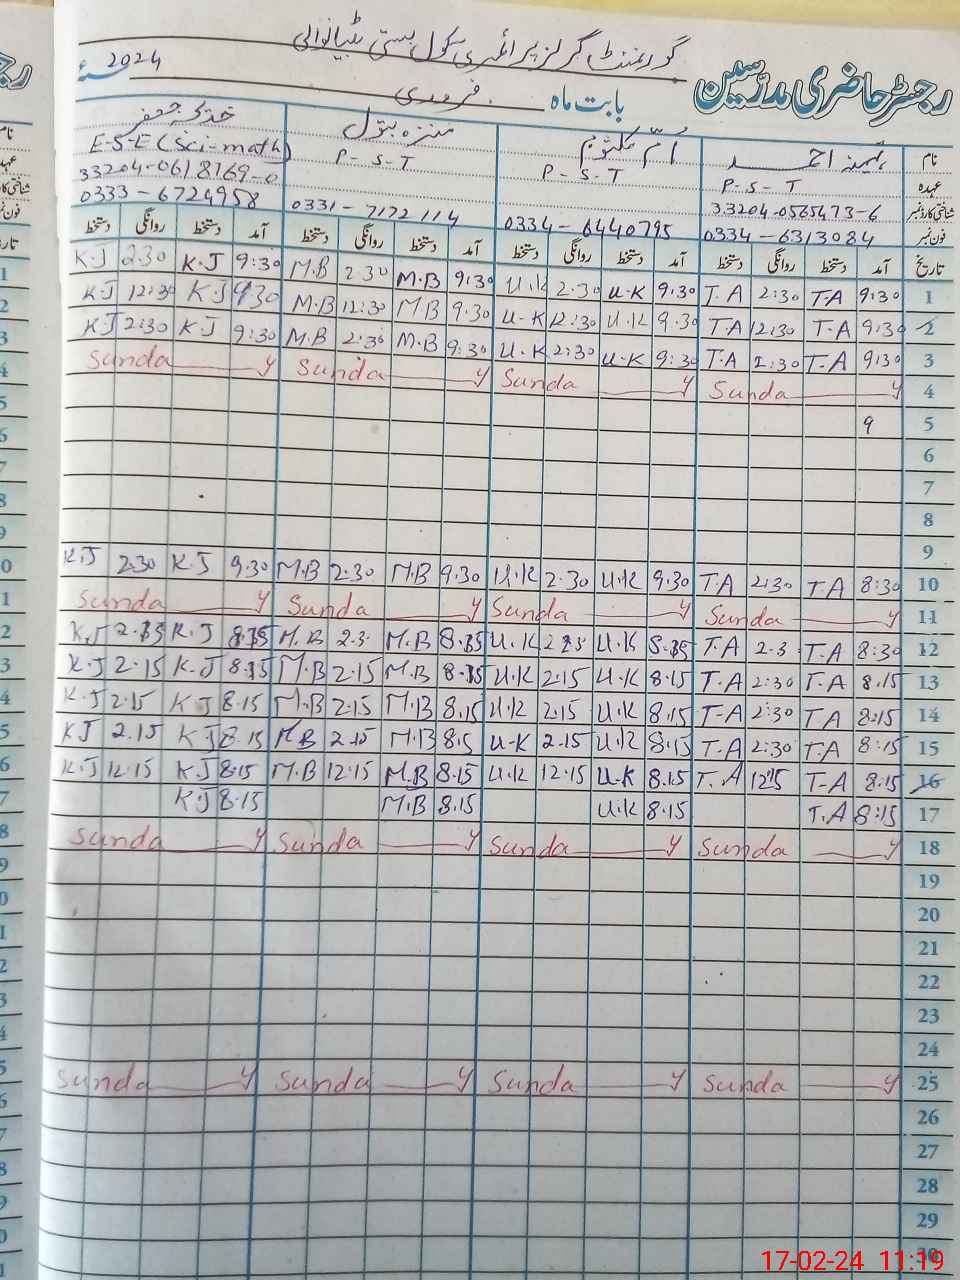 گورنمنٹ گرلز پرائمری سکول بستی
رجسٹر حاضری مدرسین
بابت ماہ فروری 2024ء
نام احمد ام کلثوم منزہ بتول خدیجہ جعفر
عہدہ P-S-T P-S-T P-S-T E-S-E (Sci-math)
شناختی کارڈ نمبر 33204-0565473-6 33204-0618769-0
فون نمبر 0334-6313084 0334-6440795 0331-7172114 0333-6724958
تاریخ آمد دستخط روانگی دستخط آمد دستخط روانگی دستخط آمد دستخط روانگی دستخط آمد دستخط روانگی دستخط
1 9:30 T.A 2:30 T.A 9.30 U.K 2:30 U.K 9:30 M.B 2:30 M.B 9:30 K.J 2:30 K.J
2 9:30 T.A 12:30 T.A 9.30 U.K 12:30 U.K 9.30 M.B 12:30 M.B 9:30 K.J 12:30 K.J
3 9:30 T.A 2:30 T.A 9:30 U.K 2:30 U.K 9:30 M.B 2:30 M.B 9:30 K.J 2:30 K.J
4 Sunday Sunday Sunday Sunday
5 9
6
7
8
9
10 8:30 T.A 2:30 T.A 9.30 U.K 2.30 U.K 9.30 M.B 2.30 M.B 9.30 K.J 2.30 K.J
11 Sunday Sunday Sunday Sunday
12 8:30 T.A 2.3 T.A U.K U.K M.B 2.3 M.B K.J K.J
13 8.15 T.A 2:30 T.A 8.15 U.K 2.15 U.K 8.15 M.B 2.15 M.B 8.15 K.J 2.15 K.J
14 8:15 T.A 2:30 T-A 8.15 U.K 2.15 U.K 8.15 M.B 2.15 M.B 8.15 K.J 2.15 K.J
15 8:15 T.A 2:30 T.A 8.15 U.K 2.15 U-K 8.15 M.B 2.15 M.B 8.15 K.J 2.15 K.J
16 8.15 T-A 1215 T.A 8.15 U.K 12.15 U.K 8.15 M.B 12.15 M.B 8.15 K.J 12.15 K.J
17 8:15 T.A 8.15 U.K 8.15 M.B 8.15 K.J
18 Sunday Sunday Sunday Sunday
19
20
21
22
23
24
25 Sunday Sunday Sunday Sunday
26
27
28
29
30
17-02-24 11:19